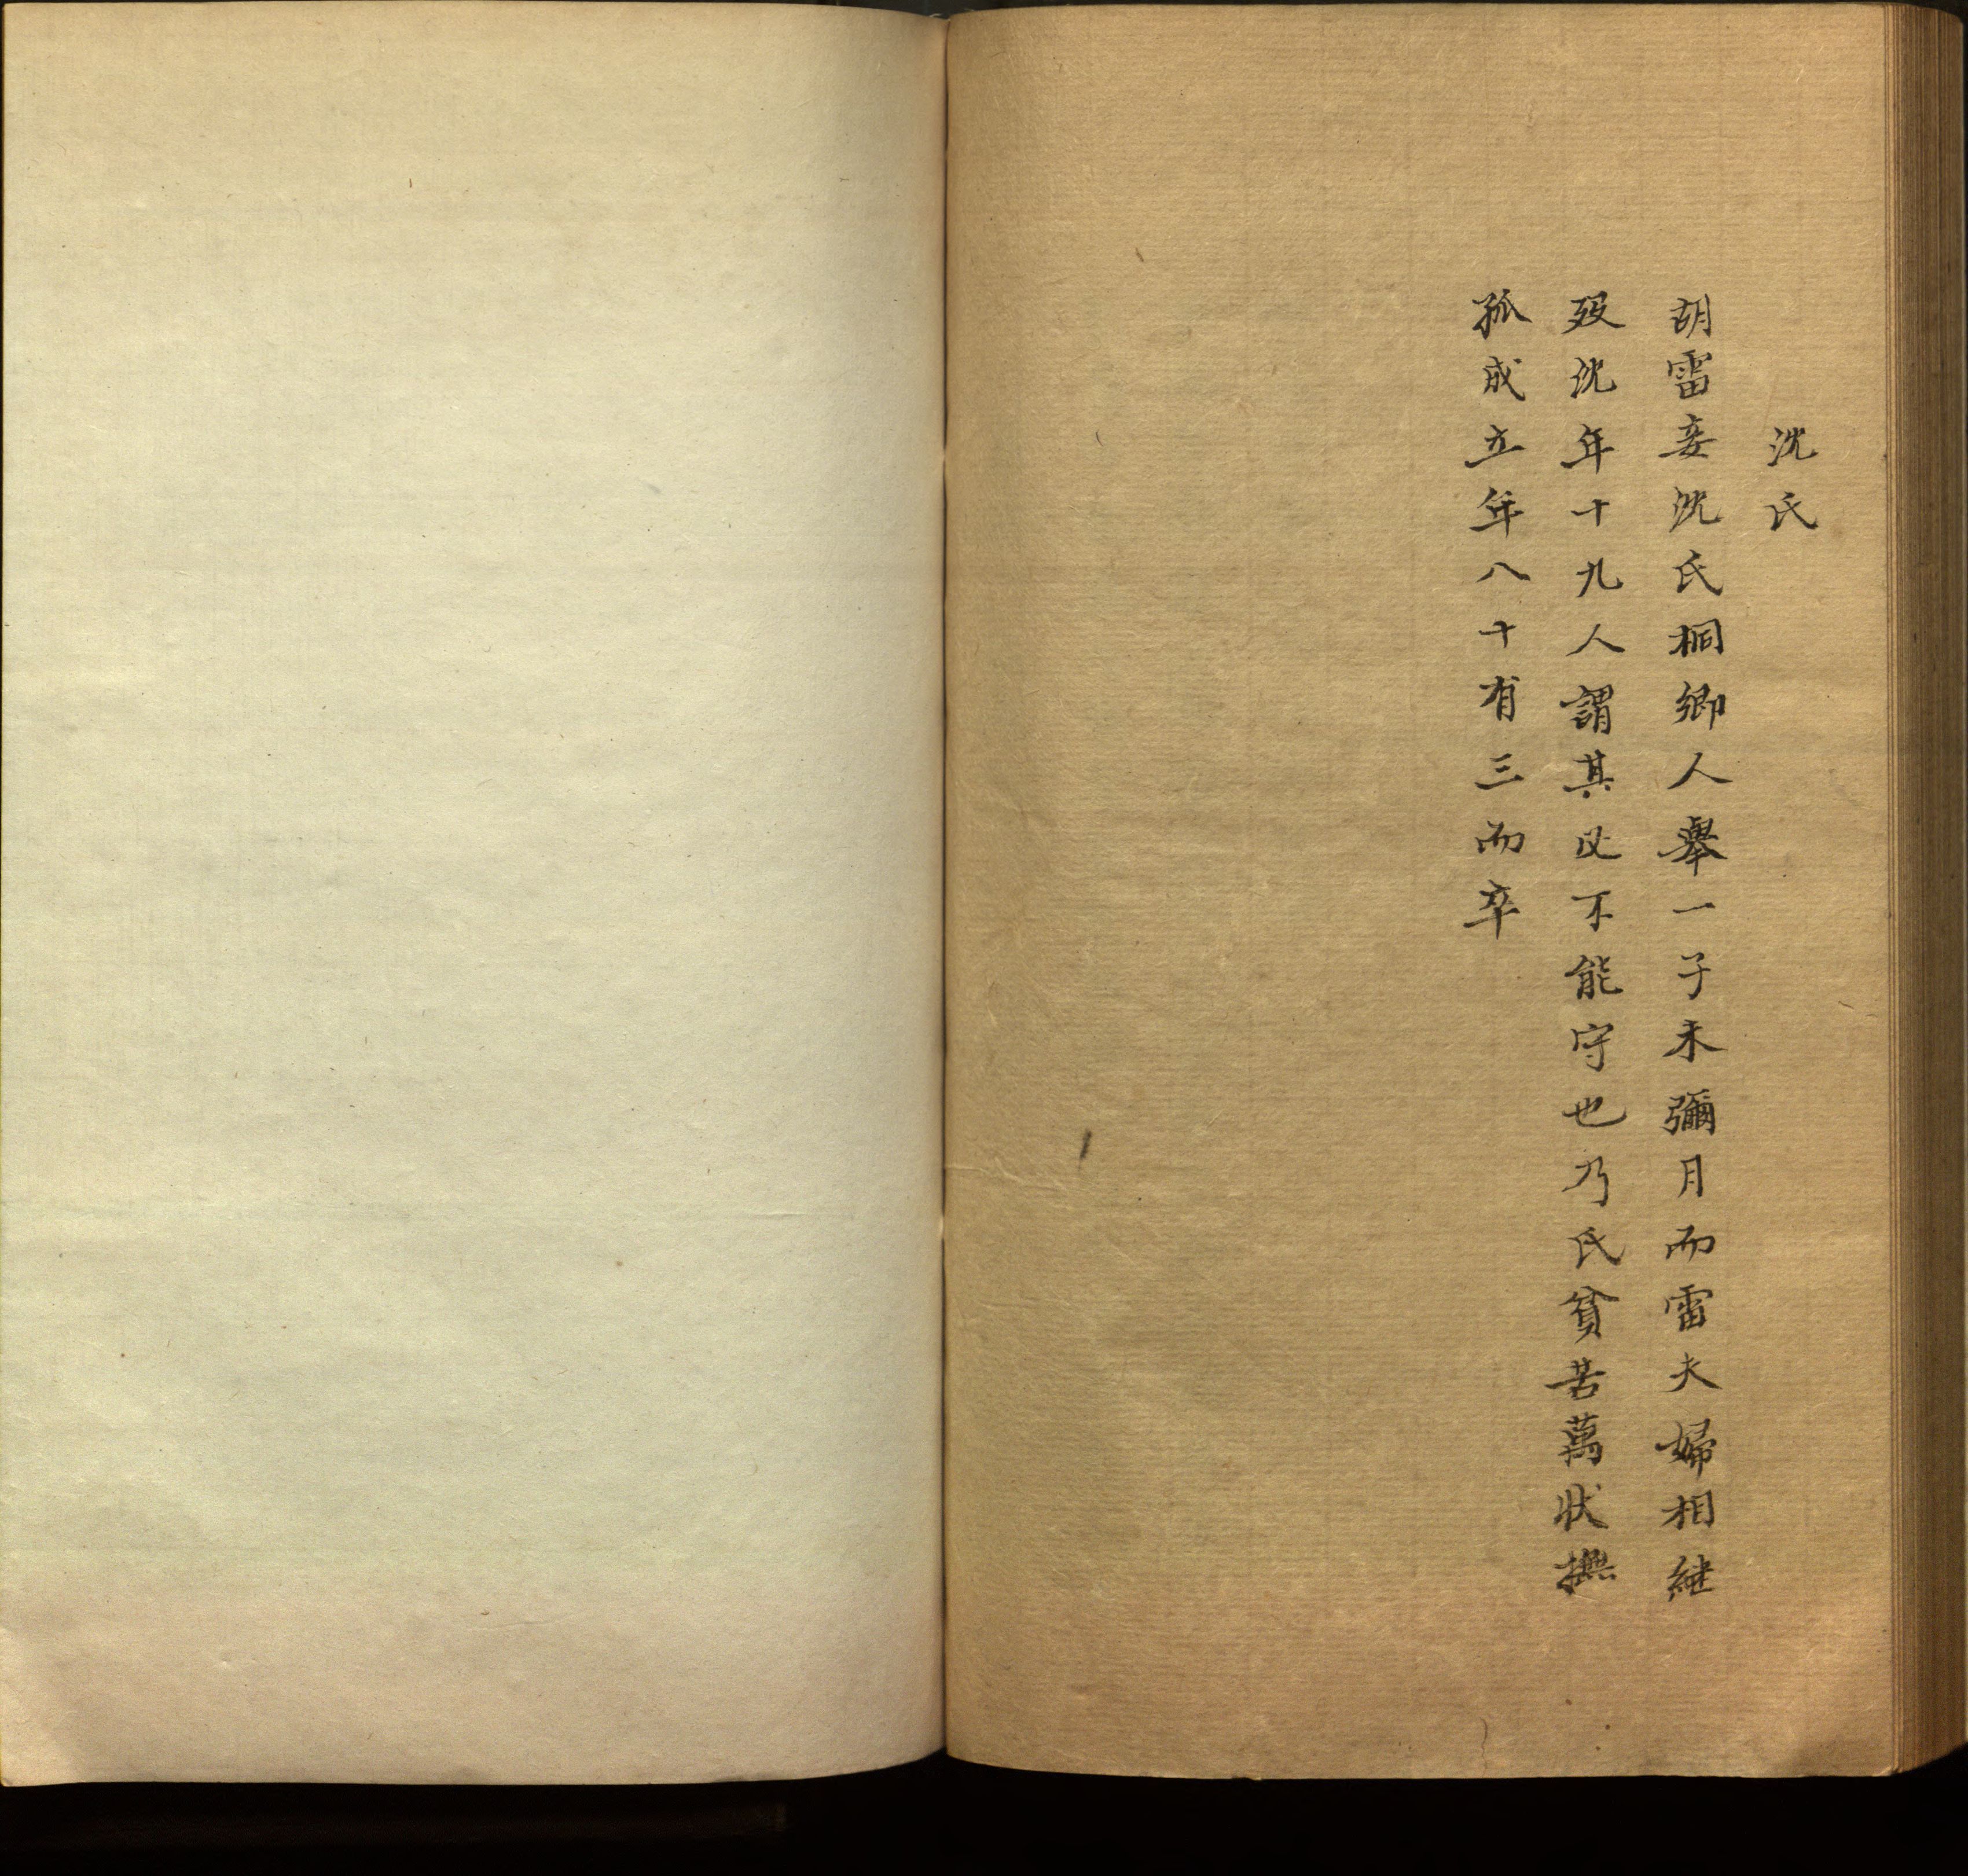 沈氏
胡雷妾沈氏桐鄉人舉一子未彌月而雷夫婦相継
歿沈年十九人謂其必不能守也乃氏貧苦萬狀撫
孤成立年八十有三而卒